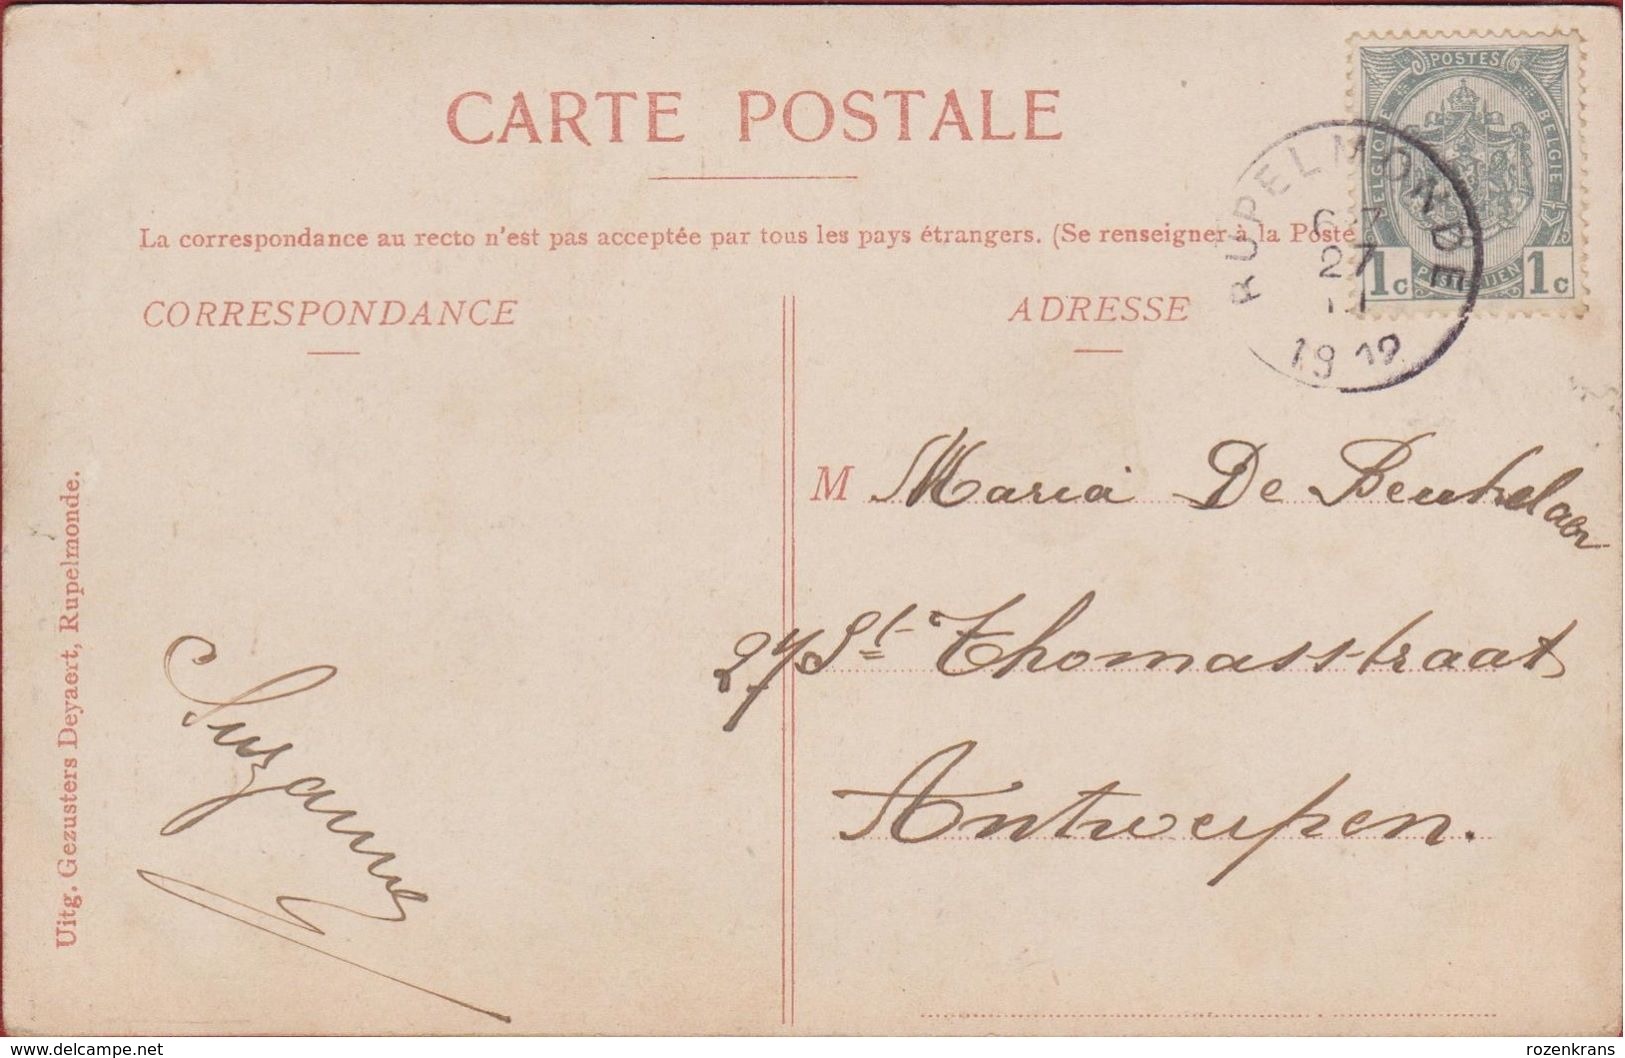 CARTE POSTALE
La correspondance au recto n'est pas acceptée par tous les pays étrangers. (Se renseigner à la Poste
CORRESPONDANCE
ADRESSE
POSTES
BELGIQUE
BELGIE
1c
1c
RUPELMONDE
27
1912
M Maria De Beukelaer
27 St Thomasstraat
Antwerpen.
Suzanne
Uitg. Gezusters Deyaert, Rupelmonde.
delcampe.net
rozenkrans